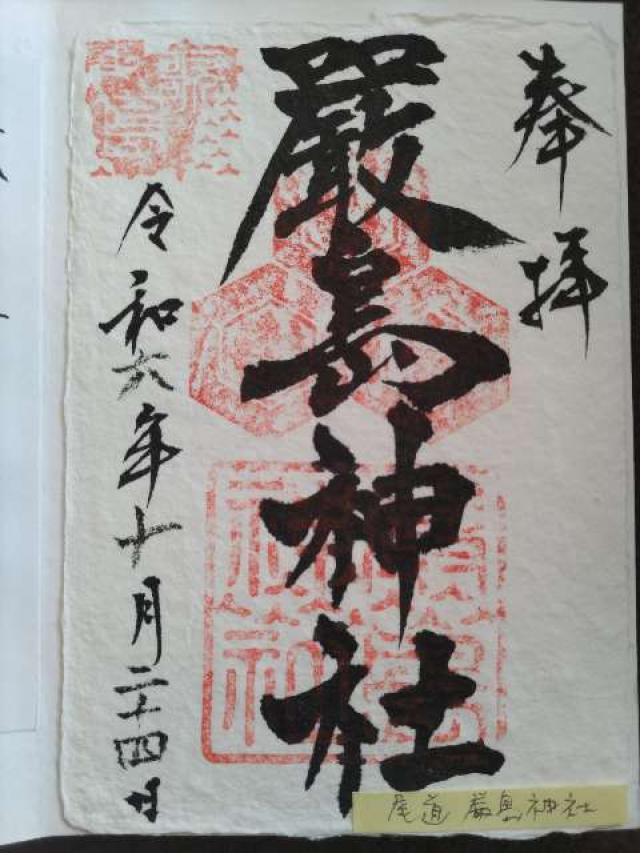 奉拝
嚴島神社
令和六年十月二十四日
尾道 厳島神社